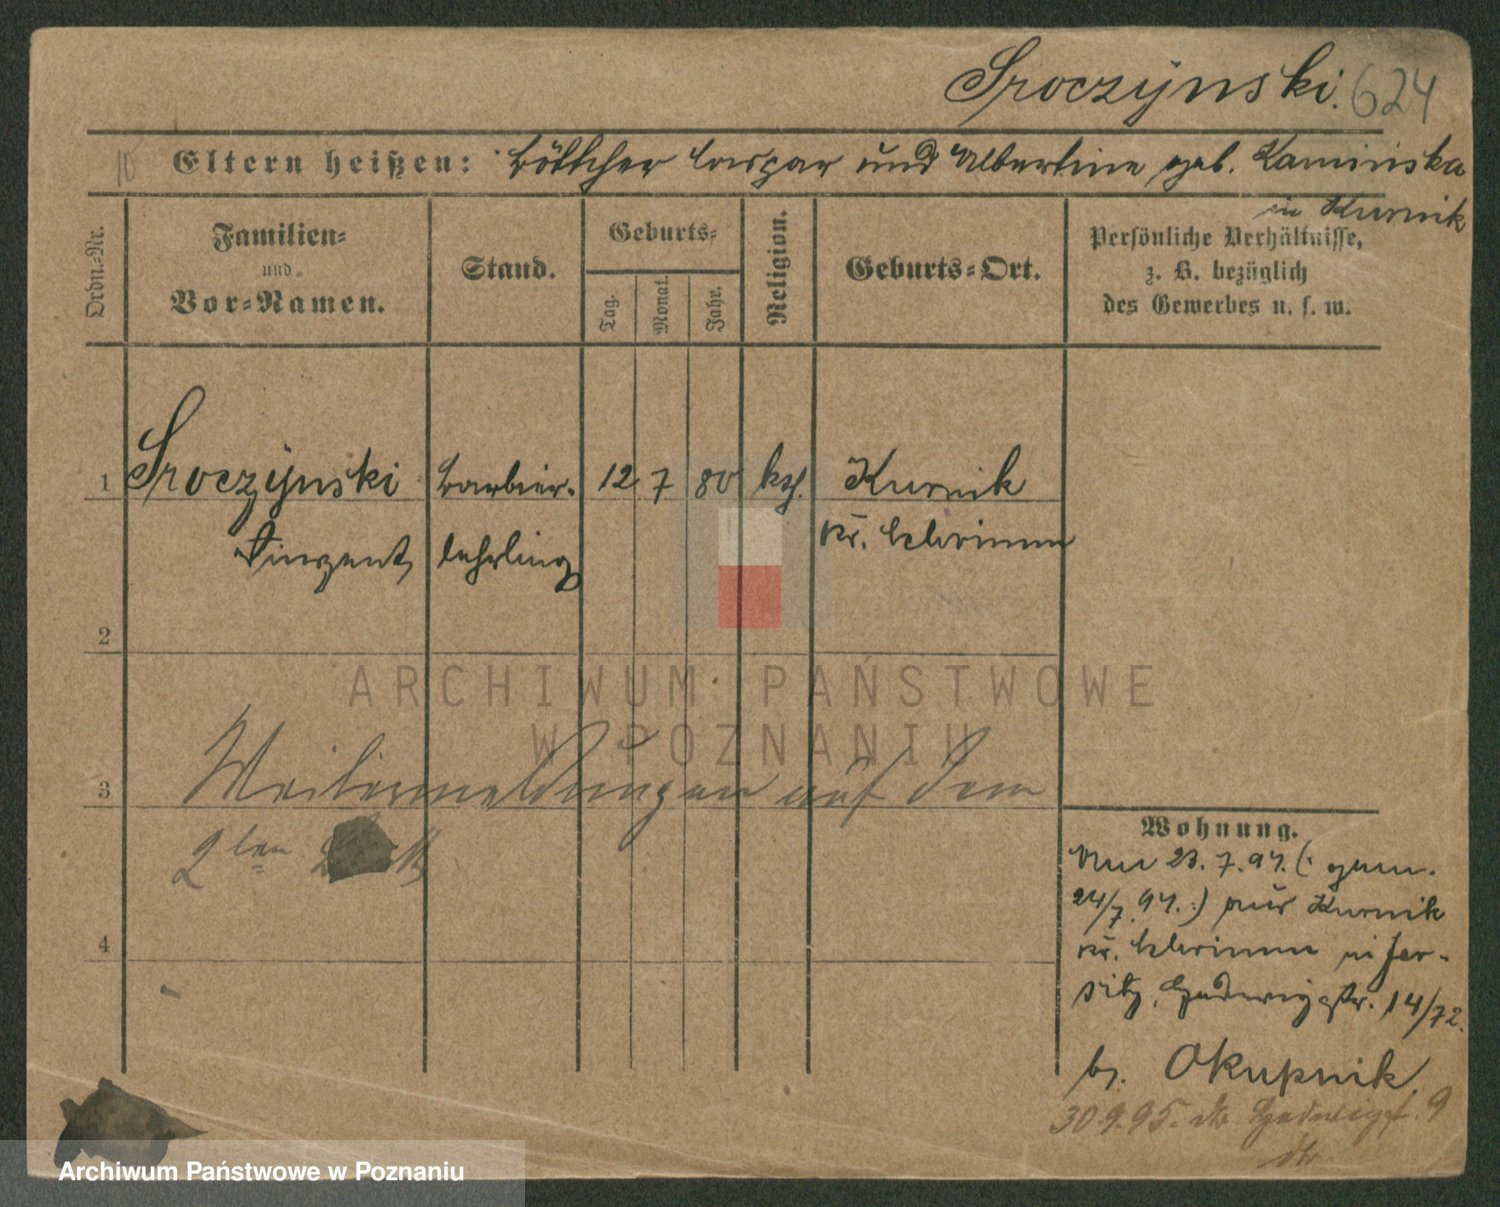 Sroczyński. 624
10 Eltern heißen: Böttcher Caspar und Albertine geb. Kamińska
in Kurnik
Ordn.-Nr.
Familien-
und
Vor-Namen.
Stand.
Geburts-
Tag.
Monat.
Jahr.
Religion.
Geburts-Ort.
Persönliche Verhältnisse,
z. B. bezüglich
des Gewerbes u. s. w.
1 Sroczyński Barbier- 12 7 80 kth. Kurnik
Vinzent lehrling Kr. Schrimm
2
3 Weitermeldungen auf dem
2ten
4
Wohnung.
Am 23.7.94. (: gem.
24/7.94. :) aus Kurnik
Kr. Schrimm in Jer-
sitz, Hedwigstr. 14/72.
bei Okupnik.
30.9.95. Hedwigst. 9
ARCHIWUM PAŃSTWOWE
W POZNANIU
Archiwum Państwowe w Poznaniu